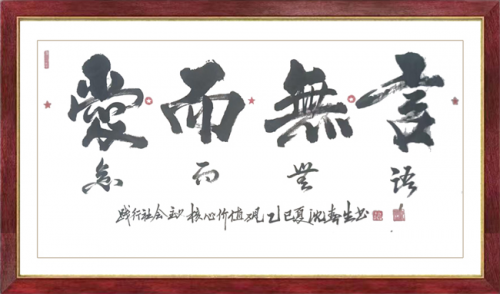 愛而無言
念而無語
践行社会主义核心价值观 乙巳夏 沈 生书